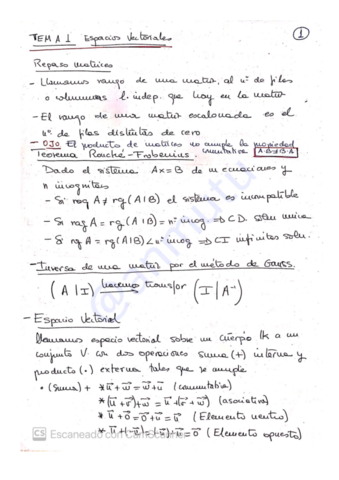 TEMA 1 Espacios Vectoriales
1
Repaso matrices
- Llamamos rango de una matriz, al nº de filas
o columnas l. indep. que hay en la matriz
- El rango de una matriz escalonada es el
nº de filas distintas de cero
- OJO El producto de matrices no cumple la propiedad
conmutativa A·B≠B·A
Teorema Rouché-Frobenius.
Dado el sistema Ax=B de m ecuaciones y
n incognitas
- Si rag A ≠ rg(A|B) el sistema es incompatible
- Si rag A = rg(A|B) = nº incog ⇒ CD. soluc unica
- Si rg A = rg(A|B) < nº incog ⇒ CI infinitas soluc
- Inversa de una matriz por el método de Gauss.
(A|I) transfor (I|A⁻¹)
- Espacio Vectorial
Llamamos espacio vectorial sobre un cuerpo lk a un
conjunto V con dos operaciones suma (+) interna y
producto (·) externa tales que se cumple
• (Suma) + * u⃗+w⃗ = w⃗+u⃗ (conmutativa)
* (u⃗+v⃗)+w⃗ = u⃗+(v⃗+w⃗) (asociativa)
* u⃗+0⃗ = 0⃗+u⃗ = u⃗ (Elemento neutro)
* u⃗+(-u⃗) = (-u⃗)+u⃗ = 0⃗ (Elemento opuesto)
CS Escaneado con CamScanner